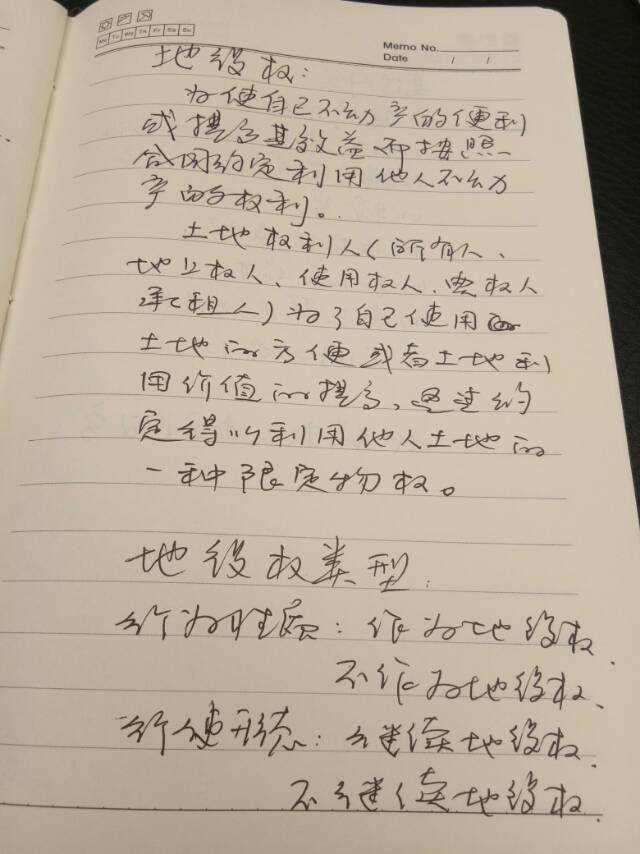 Mo Tu We Th Fr Sa Su
Memo No.
Date / /
地役权：
为使自己不动产的便利
或提高其效益而按照
合同约定利用他人不动
产的权利。
土地权利人（所有人、
地上权人、使用权人、典权人
承租人）为了自己使用
土地的方便或者土地利
用价值的提高，通过约
定得以利用他人土地的
一种限定物权。
地役权类型：
行为性质：作为地役权、
不作为地役权、
行使形态：继续地役权、
不继续地役权、